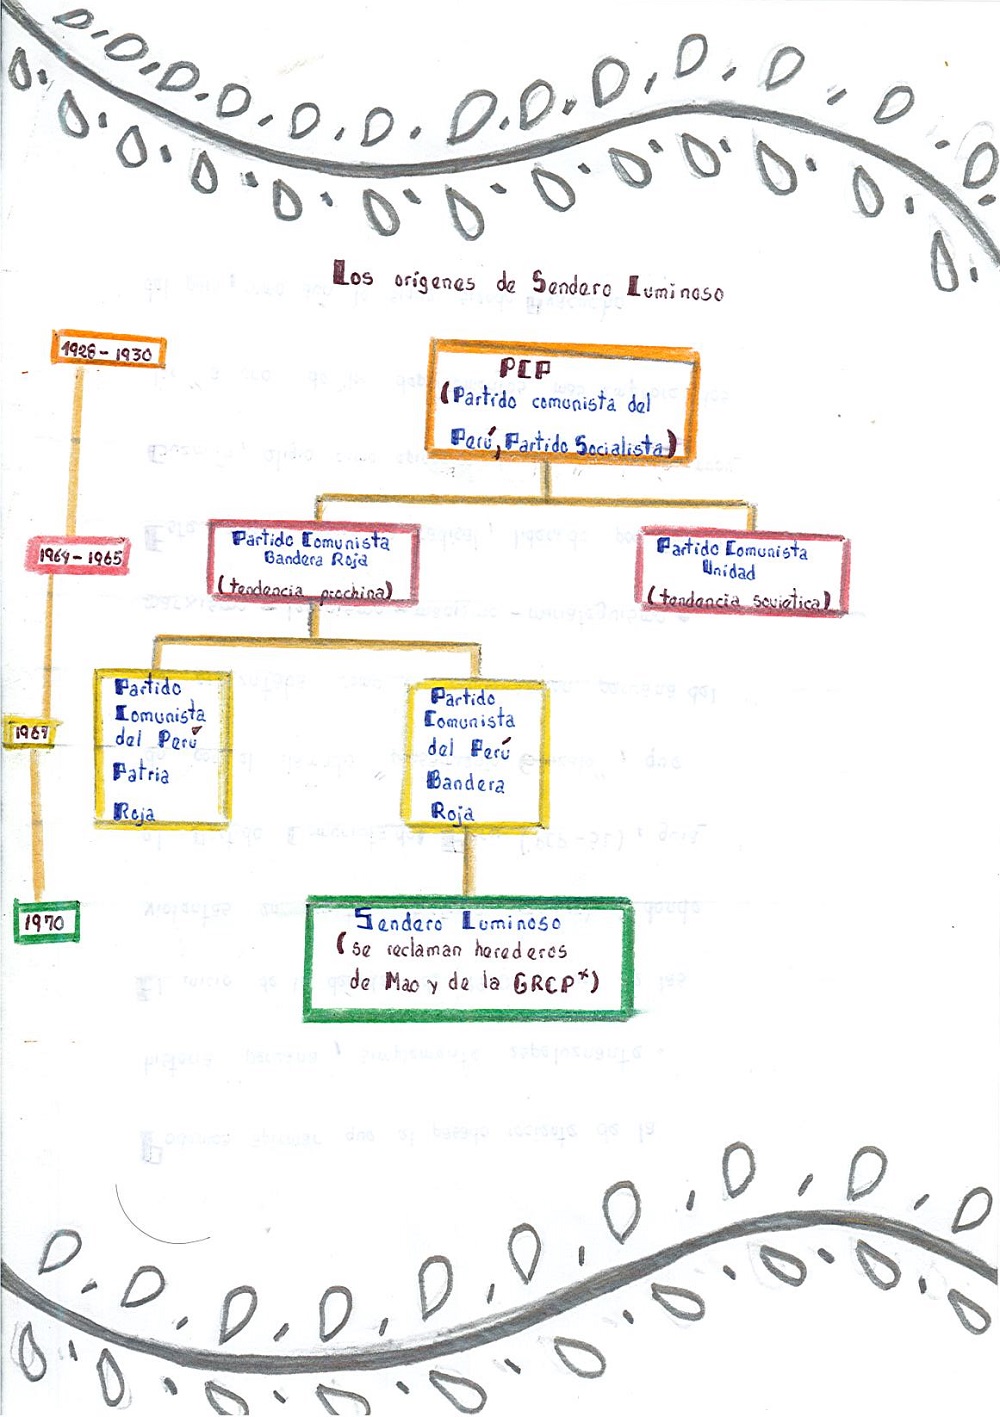 Los orígenes de Sendero Luminoso
1928 - 1930
PCP
(Partido comunista del
Perú, Partido Socialista)
1964 - 1965
Partido Comunista
Bandera Roja
(tendencia prochina)
Partido Comunista
Unidad
(tendencia sovietica)
1967
Partido
Comunista
del Perú
Patria
Roja
Partido
Comunista
del Perú
Bandera
Roja
1970
Sendero Luminoso
(se reclaman herederos
de Mao y de la GRCP*)